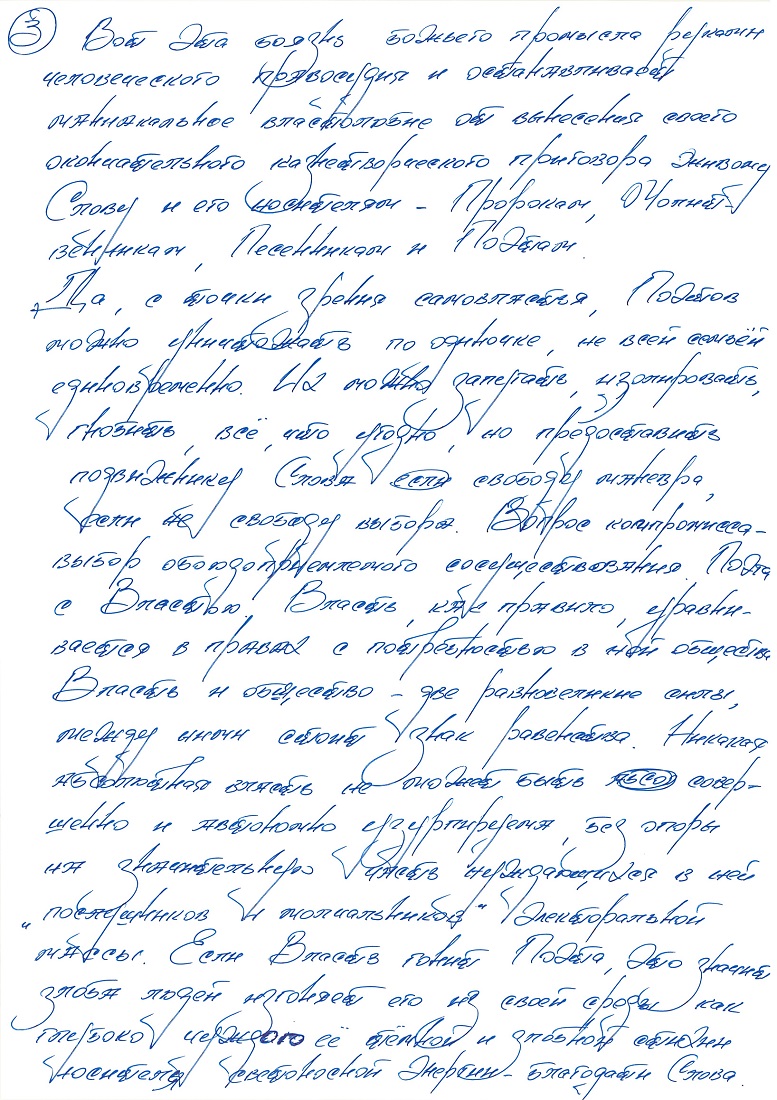 3
Вот эта боязнь божьего промысла
человеческого правосудия и останавливает
маниакальное властолюбие от вынесения своего
окончательного палаческого приговора живому
Слову и его носителям – Пророкам,
Песенникам и Поэтам.
Да, с точки зрения самовластья, Поэтов
можно уничтожать по одиночке, не всей семьёй
единовременно. Их можно запугать, изолировать,
гнобить, всё, что угодно, но предоставить
подвижнику Слова если свободу манёвра,
если не свободу выбора. Вопрос компромисса –
выбор обоюдоприемлемого сосуществования Поэта
с Властью. Власть, как правило, уравни-
вается в правах с потребностью в ней общества
Власть и общество – две равновеликие силы,
между ними стоит знак равенства. Никакая
абсолютная власть не может быть абсо совер-
шенно и автономно узурпируема, без опоры
на значительную часть нуждающихся в ней
"послушников и молчальников" электоральной
массы. Если Власть гонит Поэта, это значит
злоба людей изгоняет его из своей среды как
глубоко чуждого её тёмной и злобной стихии
носителя светоносной энергии – благодати Слова.